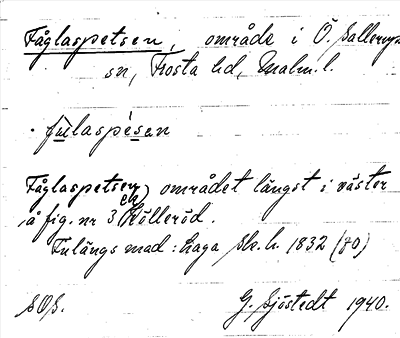 Fåglaspetsen, område i Ö. Sallerups
sn, Frosta hd, Malm. l.
fùlaspésen
Fåglaspetsen, området längst i väster
en)
å fig. nr 3 Rölleröd.
Fulängs mad: Laga Sk. h. 1832 (70)
SOS. G. Sjöstedt 1940.